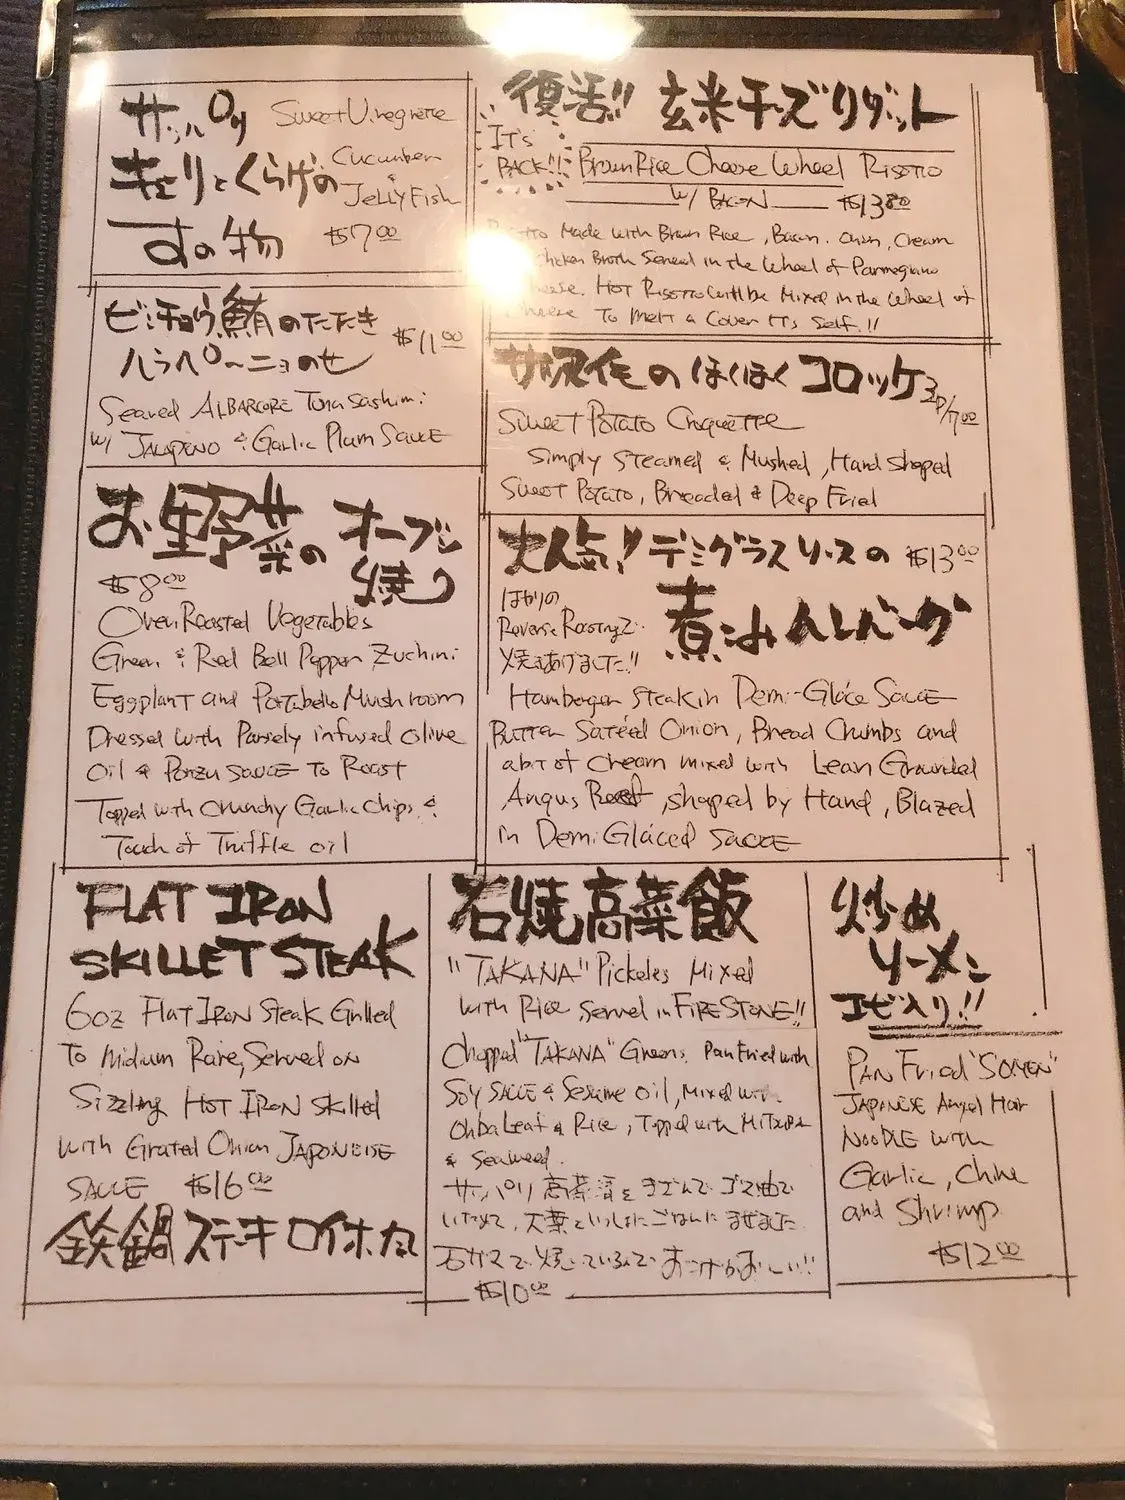 サッパリ
Sweet Vinegrette
きゅうりとくらげの
Cucumber
&
JeLLyFish
すの物
$7.00
復活!! 玄米チーズリゾット
It's
BACK!!
Brown Rice Cheese Wheel Risotto
w/ Bacon $13.80
Made with Brown Rice, Bacon. Onion, Cream
Chicken Broth Served in the Wheel of Parmegiano
Cheese. HOT Risotto will be Mixed in the Wheel of
Cheese To Melt a Cover IT's Self!!
ビンチョウ鮪のたたき
$11.00
ハラペーニョのせ
Seared ALBARCORE Tuna Sashimi
w/ JALAPENO & Garlic Plum SAUCE
のほくほくコロッケ
3P/7.00
Sweet Potato Croquette
Simply Steamed & Mushed, Hand Shaped
Sweet Potato, Breaded & Deep Fried
お野菜のオーブン
焼き
$8.00
Oven Roasted Vegetables
Green & Red Bell Pepper Zuchini
Eggplant and Portabello Mushroom
Dressed with Parsely infused olive
oil & Ponzu SAUCE To Roast
Topped with Crunchy Garlic Chips &
Touch of Truffle oil
大人気! デミグラスソースの $13.00
煮込みハンバーグ
Reverse Roastingで
焼きあげました!!
Hamberger Steak in Demi-Glace Sauce
Butter Sateed Onion, Bread Crumbs and
a bit of Cream mixed with Lean Grounded
Angus Beef, shaped by Hand, Blazed
in Demi Glaced SAUCE
FLAT IRON
SKILLET STEAK
6oz Flat IRON Steak Grilled
To Midium Rare, Served on
Sizzling HOT IRON Skilled
with Grated Onion JAPONEISE
SAUCE $16.00
鉄鍋ステーキ
石焼高菜飯
"TAKANA" Pickeles Mixed
with Rice, Served in FIRE STONE!!
Chopped "TAKANA" Greens, Pan Fried with
Soy SAUCE & Sesame Oil, Mixed with
Ohba Leaf & Rice, Topped with MITSUBA
& Seaweed.
サッパリ高菜漬をきざんでゴマ油で
いためて、大葉といっしょにごはんにまぜました
石ナベで焼いているのでおこげがおいしい!!
$10.00
炒め
ソーメン
エビ入り!!
PAN Fried "SOMEN"
JAPANESE Angel Hair
NOODLE with
Garlic, Chive
and Shrimp
$12.00